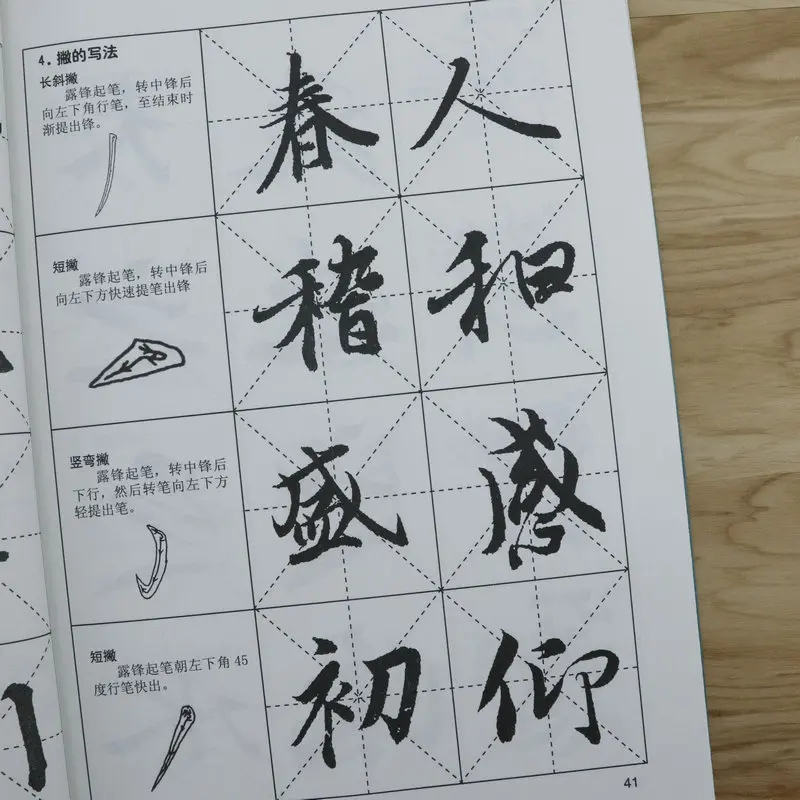 4.撇的写法
长斜撇
露锋起笔，转中锋后
向左下角行笔，至结束时
渐提出锋。
春人
短撇
露锋起笔，转中锋后
向左下方快速提笔出锋
稽和
竖弯撇
露锋起笔，转中锋后
下行，然后转笔向左下方
轻提出笔。
盛感
短撇
露锋起笔朝左下角45
度行笔快出。
初仰
41